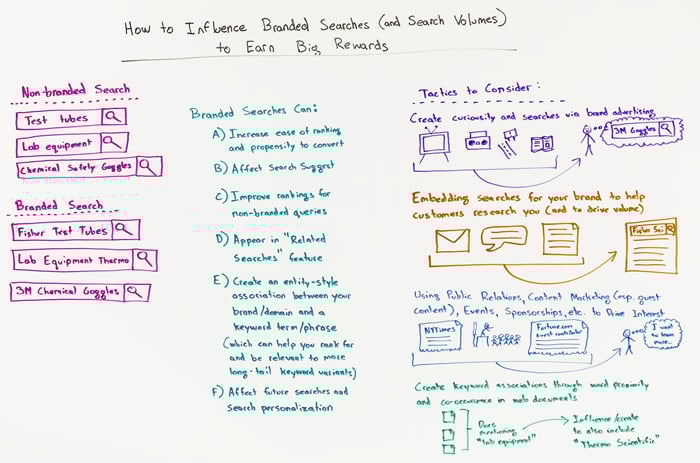 How to Influence Branded Searches (and Search Volumes)
to Earn Big Rewards
Non-branded Search
Test tubes
Lab equipment
Chemical Safety Goggles
Branded Search
Fisher Test Tubes
Lab Equipment Thermo
3M Chemical Goggles
Branded Searches Can:
A) Increase ease of ranking
and propensity to convert
B) Affect Search Suggest
C) Improve rankings for
non-branded queries
D) Appear in "Related
Searches" feature
E) Create an entity-style
association between your
brand/domain and a
keyword term/phrase
(which can help you rank for
and be relevant to more
long-tail keyword variants)
F) Affect future searches and
Search personalization
Tactics to Consider:
Create curiosity and searches via brand advertising
3M Goggles
Embedding searches for your brand to help
customers research you (and to drive volume)
Fisher Sci
Using Public Relations, Content Marketing (esp. guest
content), Events, Sponsorships, etc. to Drive Interest
NYTimes
Fortune.com
guest contributor
I want
to learn
more...
Create keyword associations through word proximity
and co-occurrence in web documents
Docs
mentioning
"lab equipment"
Influence/create
to also include
"Thermo Scientific"